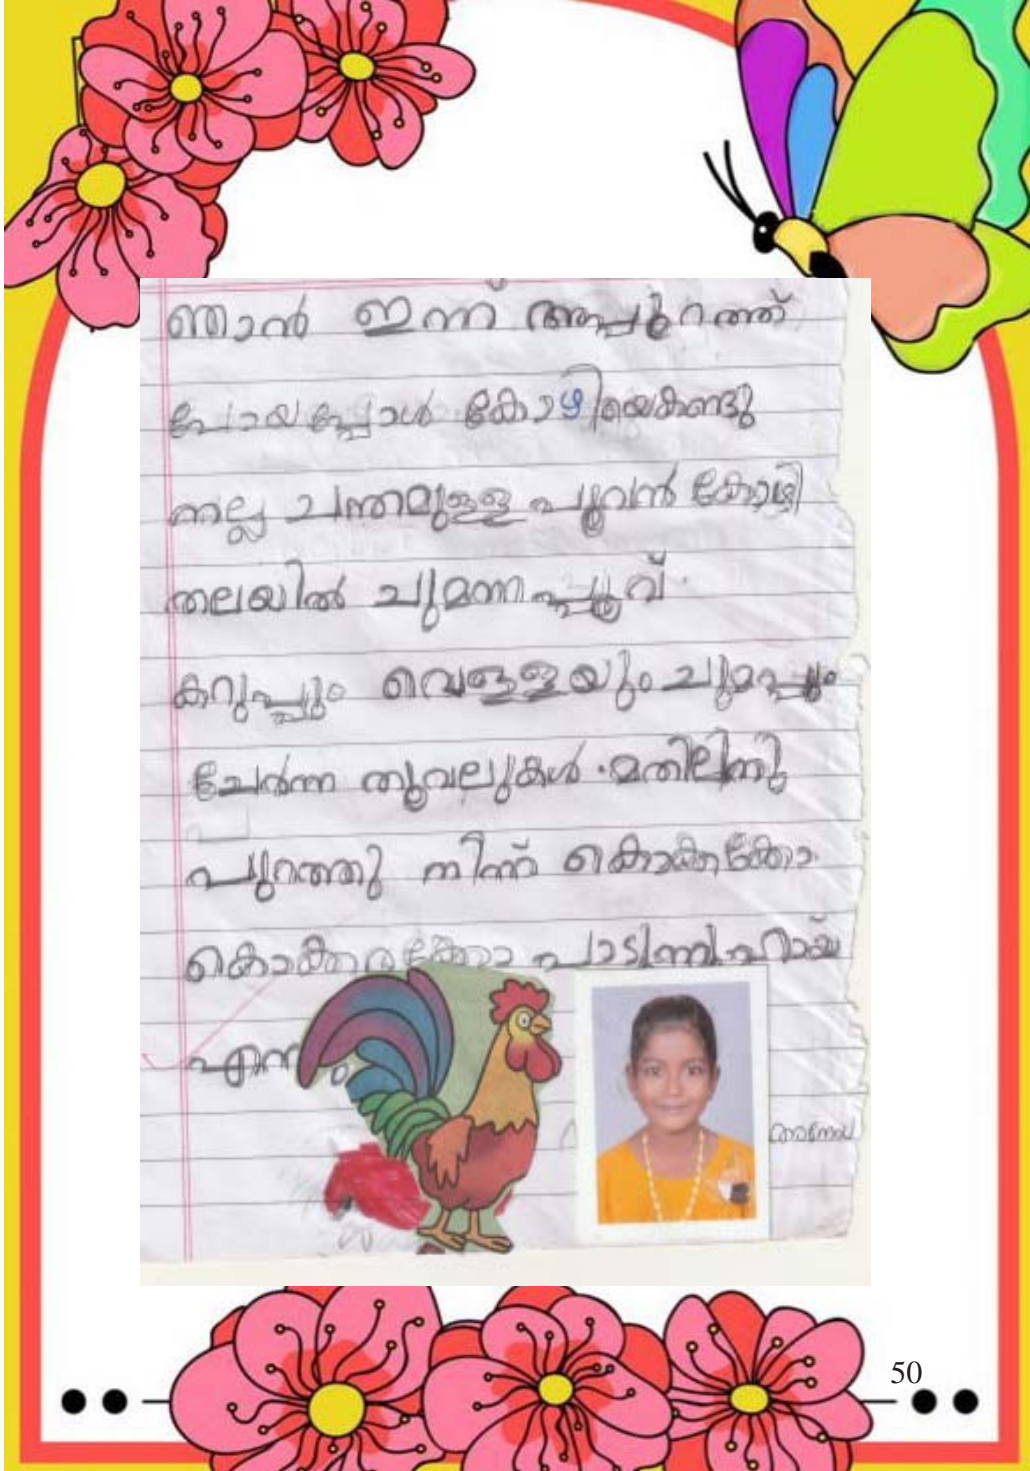 ഞാൻ ഇന്ന് അപ്പുറത്ത്
പോയപ്പോൾ കോഴിയെകണ്ടു
നല്ല ചന്തമുള്ള പൂവൻ കോഴി
തലയിൽ ചുമന്ന പ്പൂവ്.
കറുപ്പും വെള്ളയും ചുമപ്പും
ചേർന്ന തൂവലുകൾ. മതിലിനു
പുറത്തു നിന്ന് കൊക്കക്കോ
കൊക്കരക്കോ പാടി
50